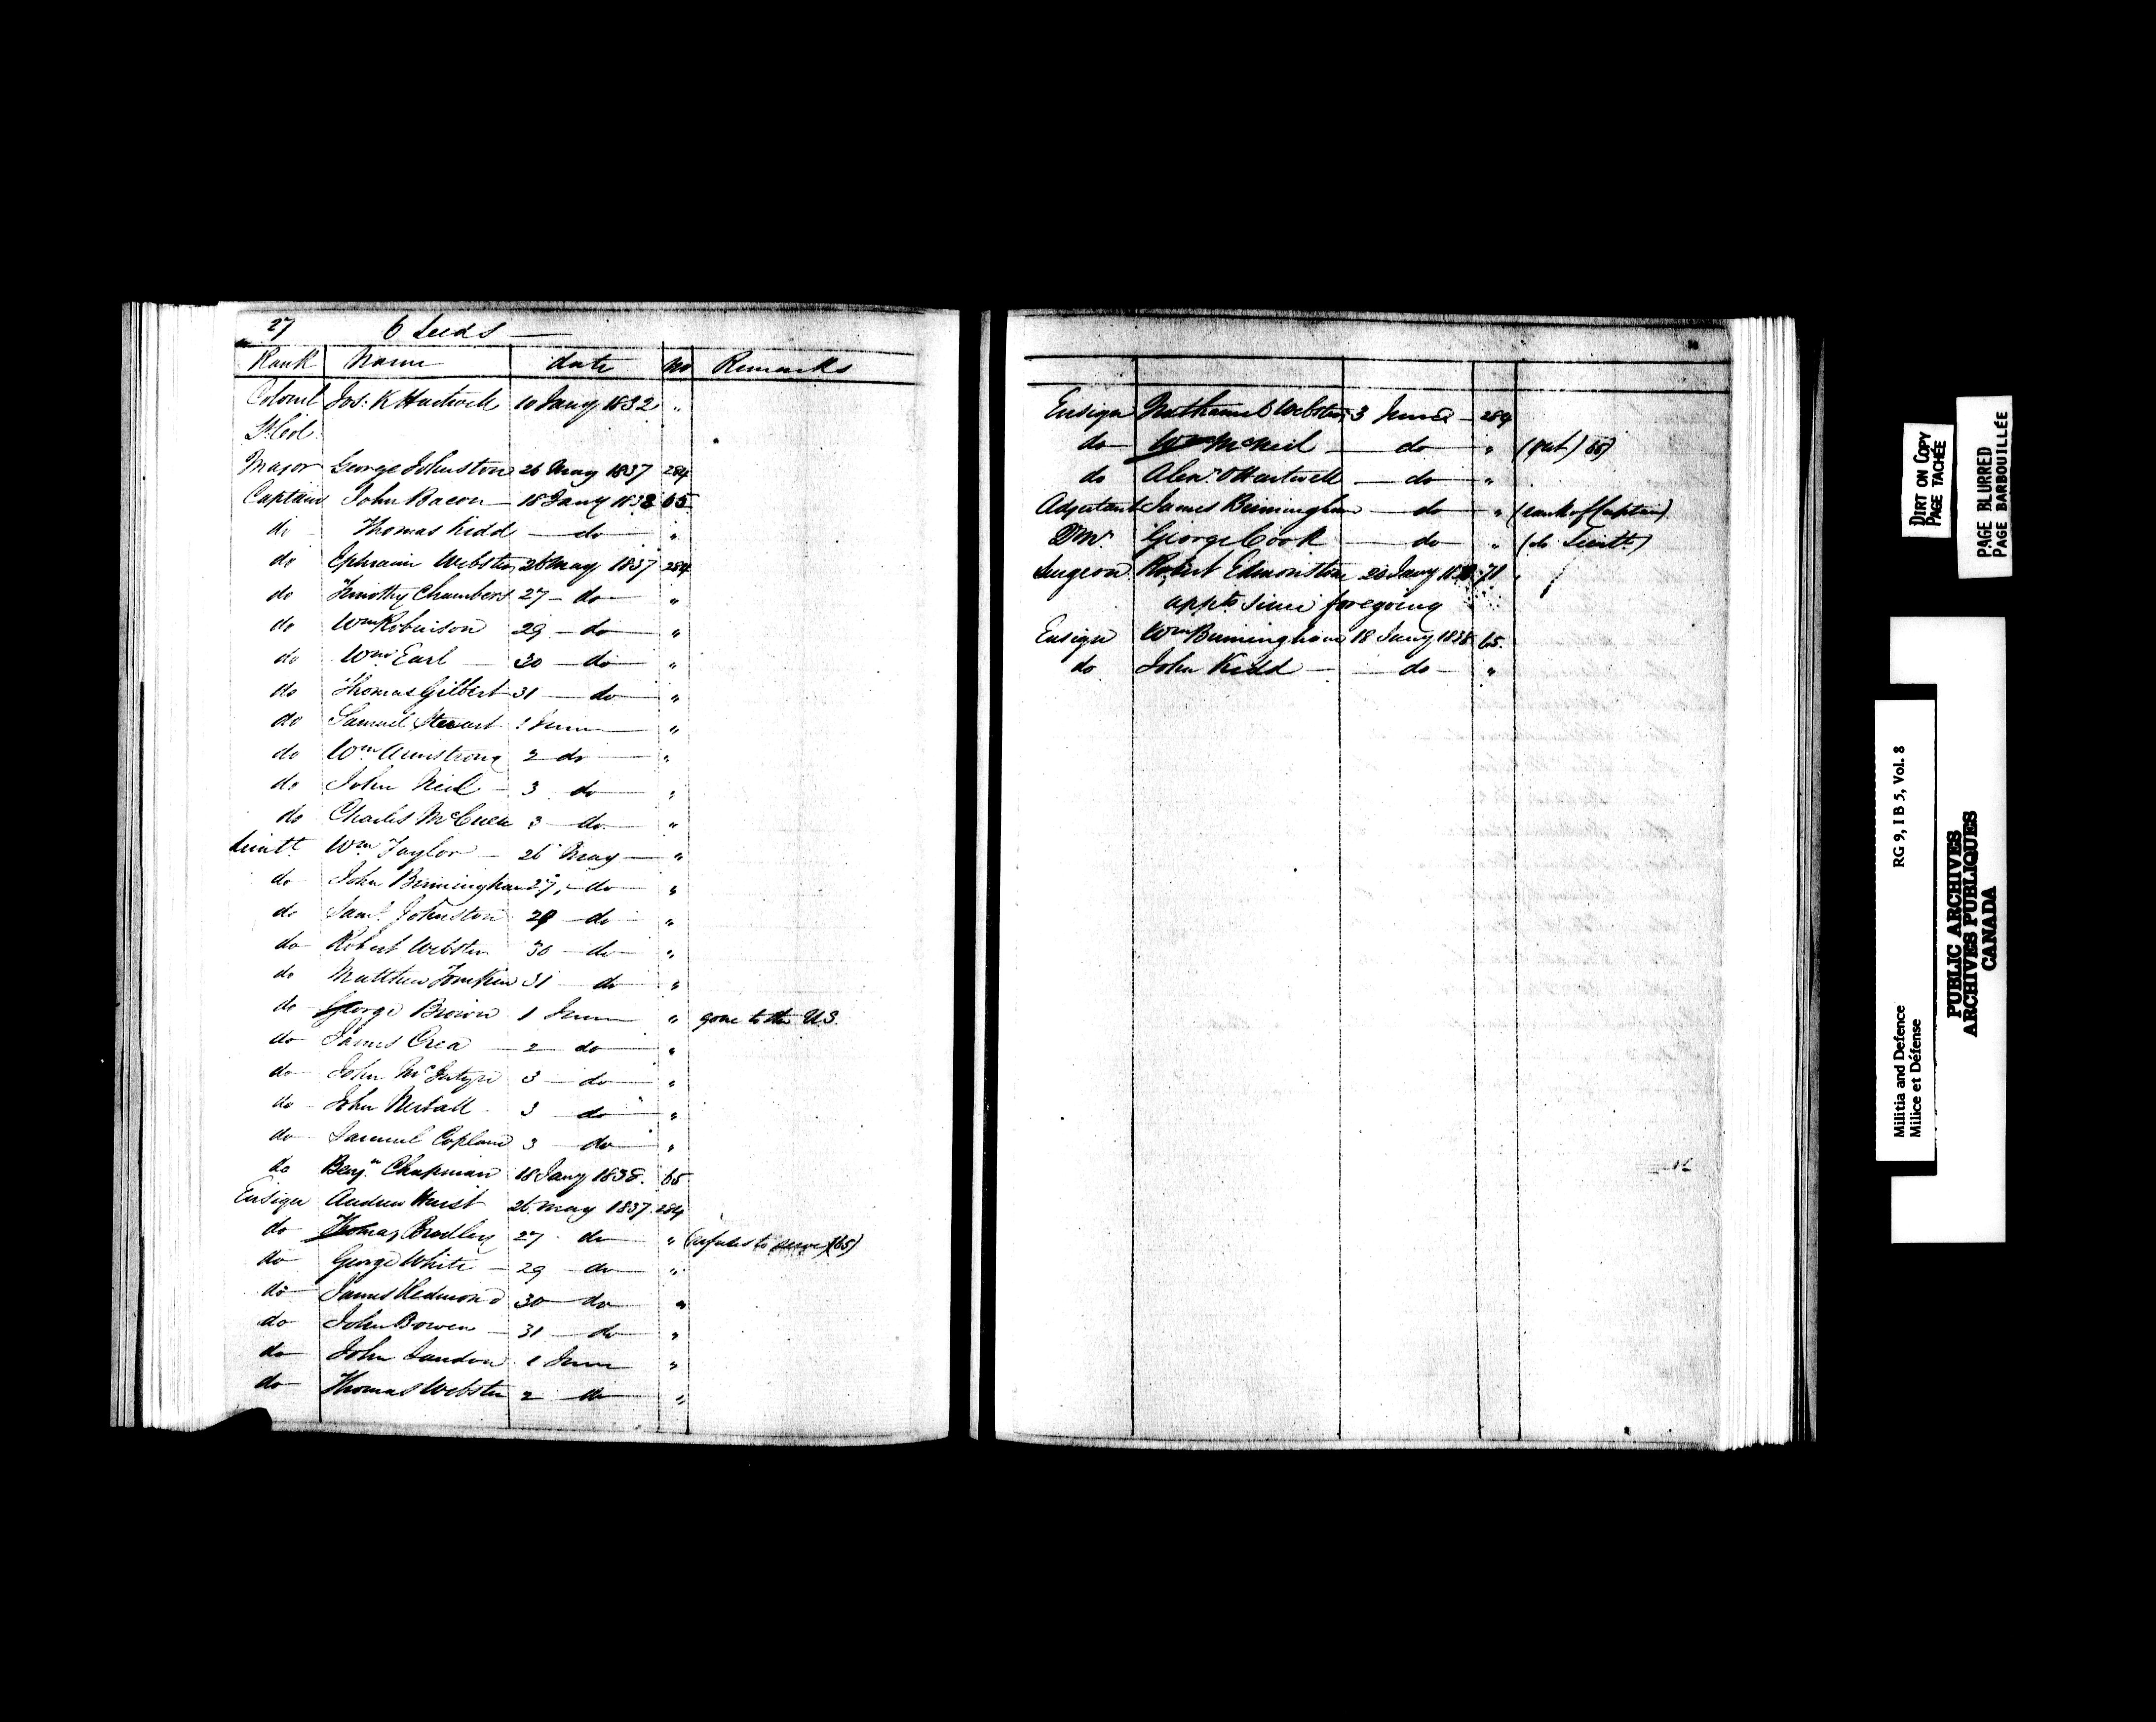 27 6 Leeds
Rank Name date No Remarks
Colonel Jos: K Hartwell 10 Jany 1832 "
Lt Col.
Major George Johnston 26 May 1837 284
Captain John Bacon 18 Jany 1838 65
do Thomas Kidd do "
do Ephraim Webster 26 May 1837 284
do Timothy Chambers 27 do "
do Wm Robinson 29 do "
do Wm Earl 30 do "
do Thomas Gilbert 31 do "
do Samuel Stewart 1 June "
do Wm Armstrong 2 do "
do John Neil 3 do "
do Charles 3 do "
Lieutt Wm Taylor 26 May "
do John Birmingham 27 do "
do Saml Johnston 29 do "
do Robert Webster 30 do "
do Matthew Tomkin 31 do "
do George Brown 1 June " gone to the U.S.
do James Crea 2 do "
do John McIntyre 3 do "
do John 3 do "
do Samuel Copland 3 do "
do Benjn Chapman 18 Jany 1838 65
Ensign Andrew Hurst 26 May 1837 284
do Thomas Bradley 27 do " (refuses to serve) (65)
do George White 29 do "
do James Redmond 30 do "
do John Bowen 31 do "
do John Landon 1 June "
do Thomas Webster 2 do "
Ensign Nathaniel Webster 3 June 284
do Wm McNeil do " 65)
do Alexr Hartwell do "
Adjutant James Birmingham do " (rank of Captain)
QMr George Cook do " (do Lieutt)
Surgeon Robert Edmonstone 20 Jany 71
appts since foregoing
Ensign Wm Birmingham 18 Jany 1838 65.
do John Kidd do "
DIRT ON COPY
PAGE TACHÉE
PAGE BLURRED
PAGE BARBOUILLÉE
Militia and Defence RG 9, I B 5, Vol. 8
Milice et Défense
PUBLIC ARCHIVES
ARCHIVES PUBLIQUES
CANADA